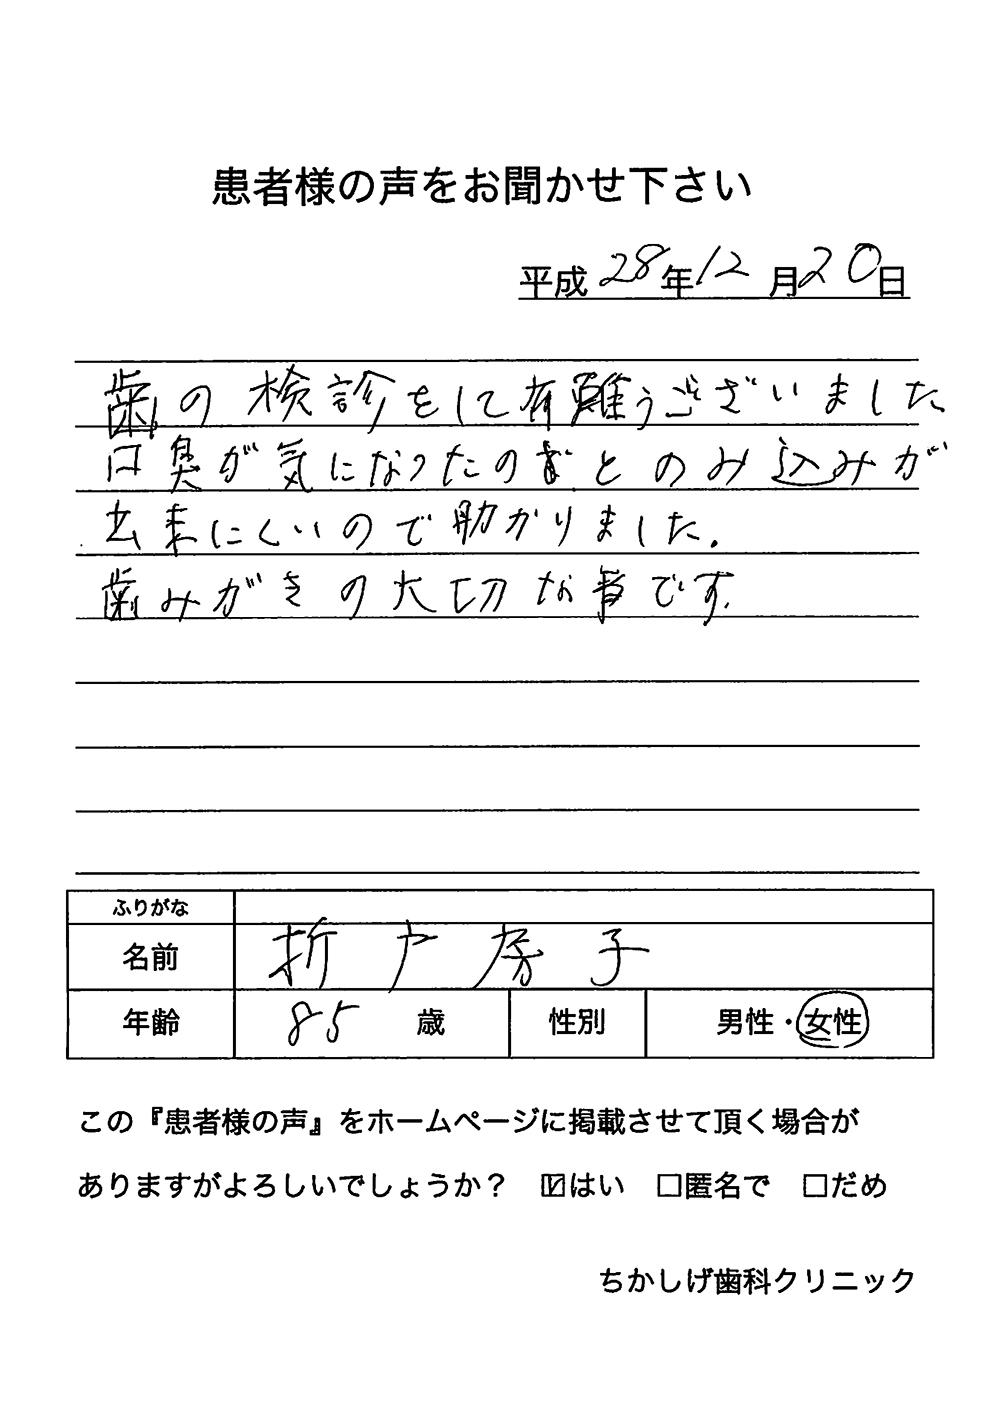 患者様の声をお聞かせ下さい
平成28年12月20日
歯の検診をして有難うございました。
口臭が気になったのとのみ込みが
出来にくいので助かりました。
歯みがきの大切な事です。
ふりがな
名前 折戸房子
年齢 85歳 性別 男性・女性
この『患者様の声』をホームページに掲載させて頂く場合が
ありますがよろしいでしょうか？ ☑はい □匿名で □だめ
ちかしげ歯科クリニック